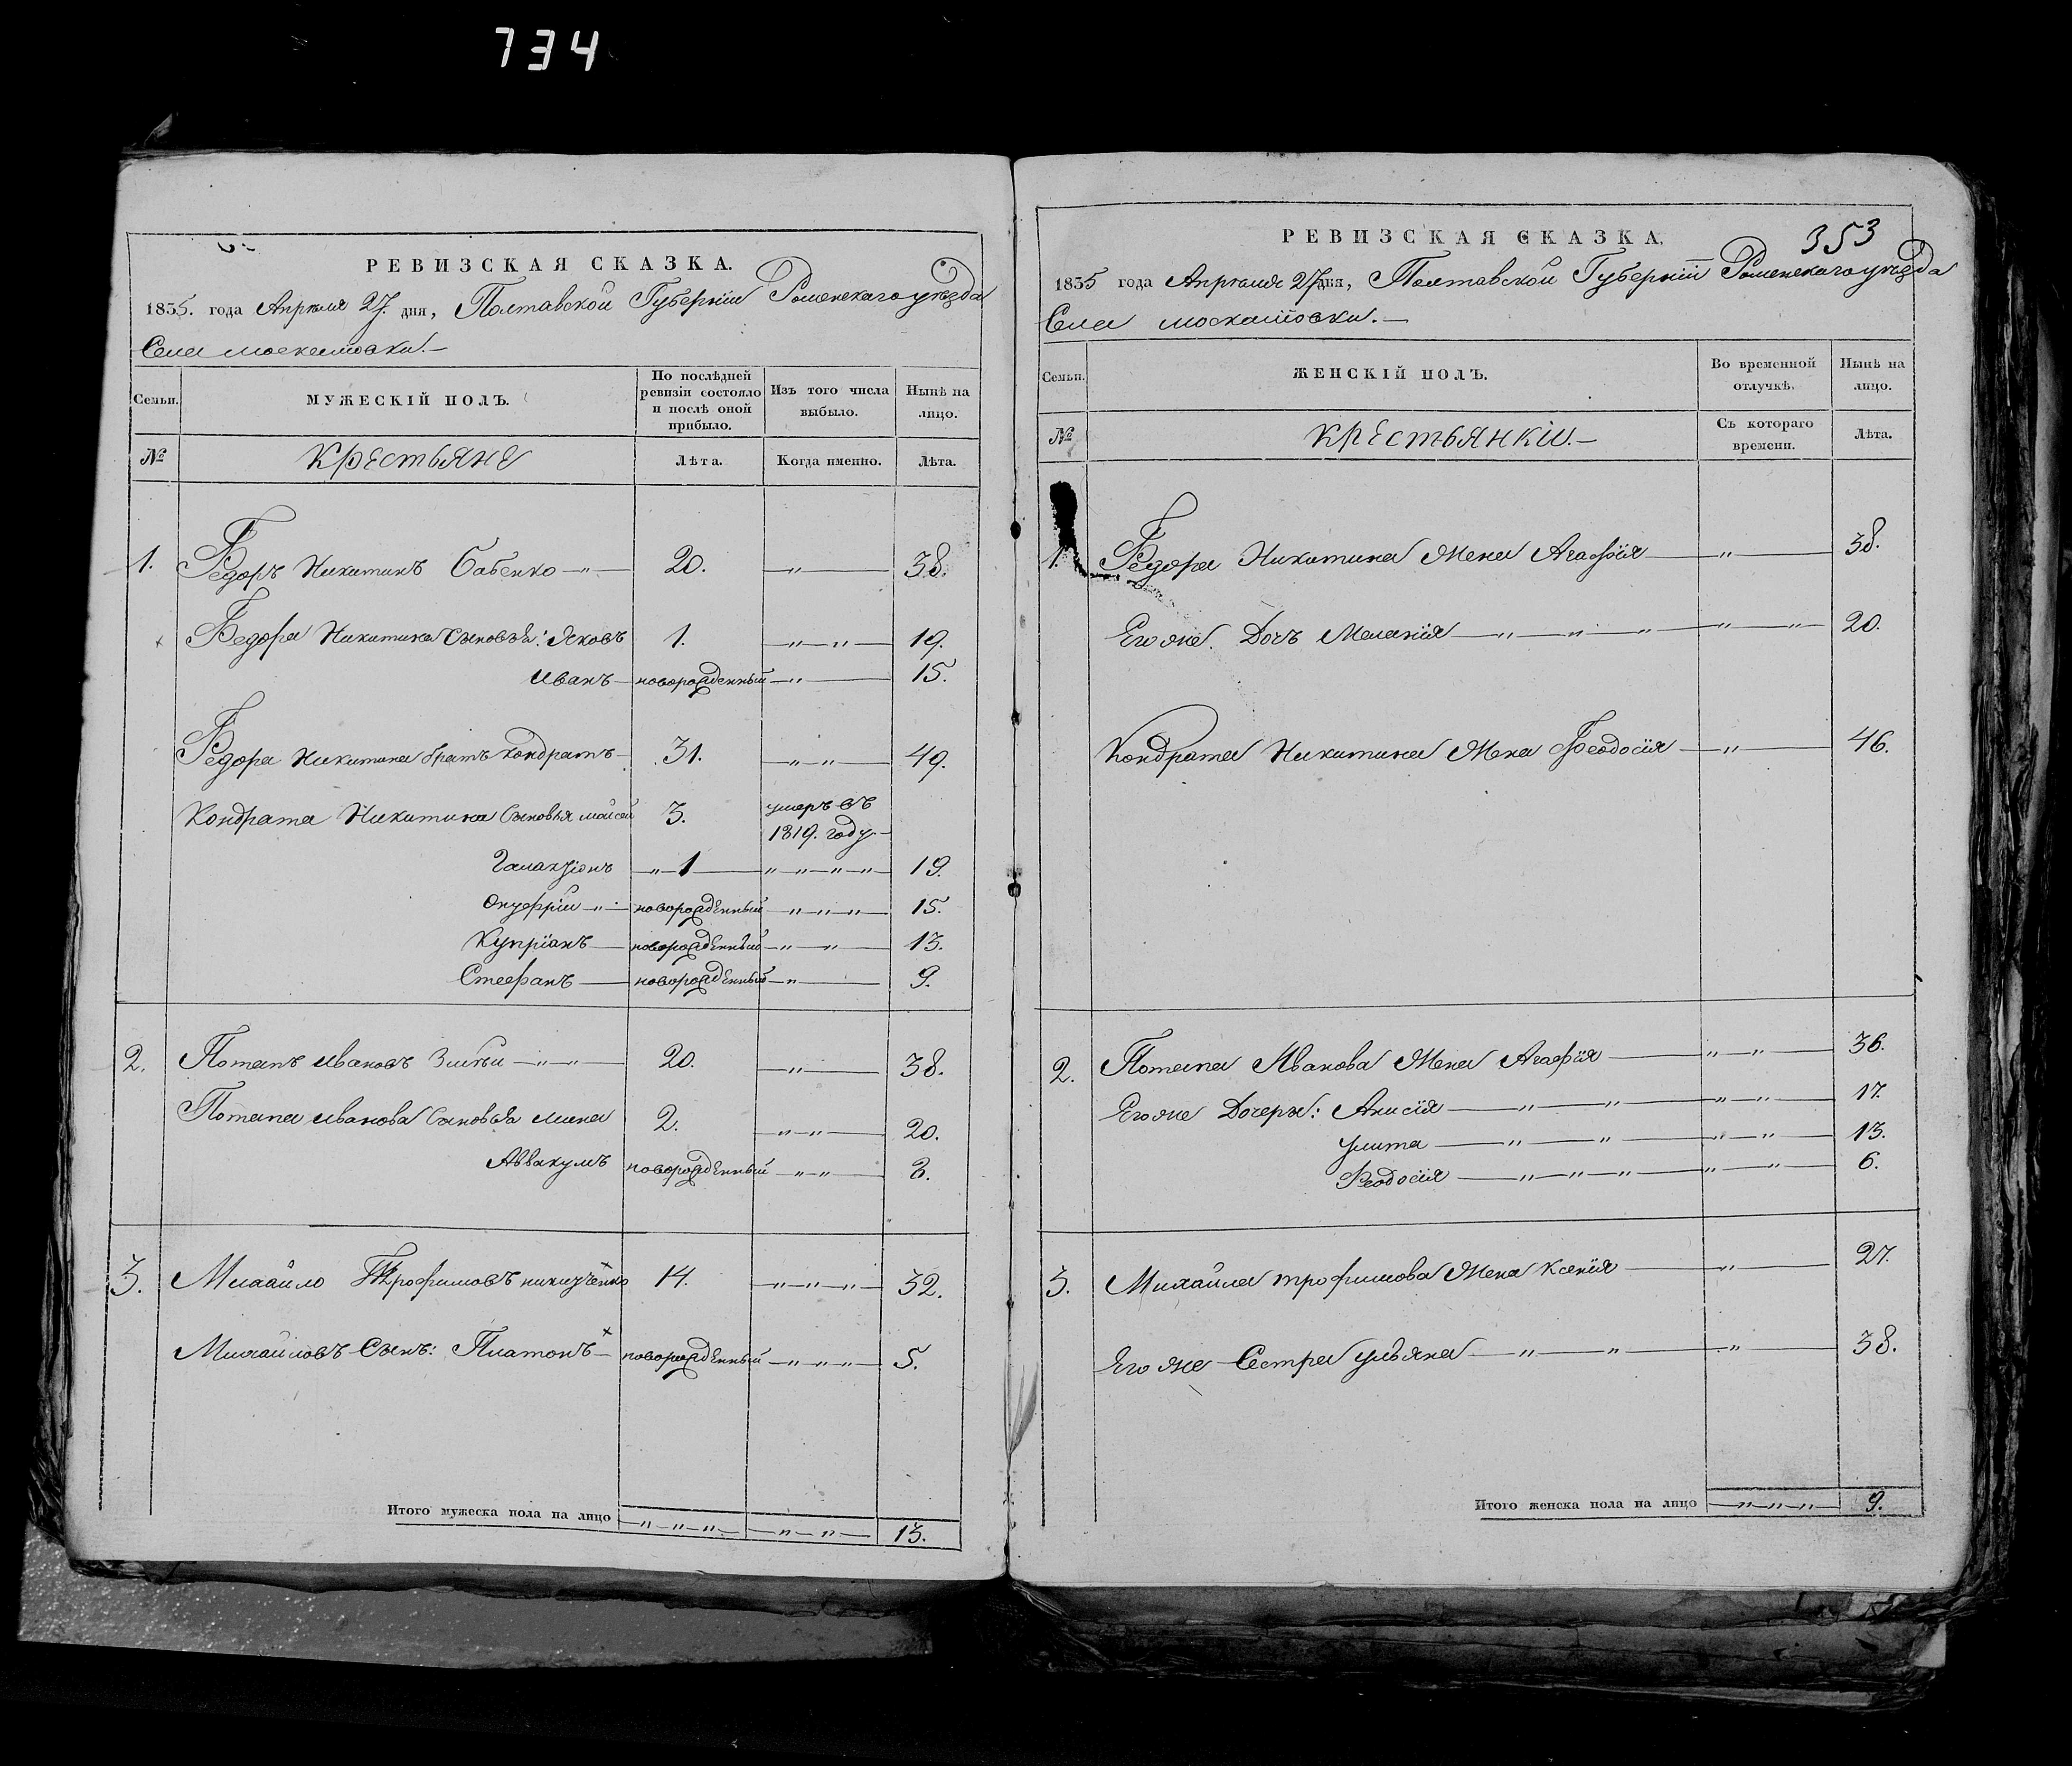 734
РЕВИЗСКАЯ СКАЗКА.
1835. года Апрѣля 27. дня, Полтавской Губерніи Роменскаго уѣзда
Села москалювки.—
Семьи.
МУЖЕСКІЙ ПОЛЪ.
По послѣдней ревизіи состояло и послѣ оной прибыло.
Изъ того числа выбыло.
Нынѣ на лицо.
№
Крестьяне
Лѣта.
Когда именно.
Лѣта.
1. Федоръ Никитинъ Бабенко —"— 20. —"— 38.
Федора Никитина Сыновья: Яковъ 1. —"—"— 19.
Иванъ — новорожденный —"— 15.
Федора Никитина братъ Кондратъ — 31. —"—"— 49.
Кондрата Никитина Сыновья мойсей 3. умеръ въ
1819. году.—
Галактіонъ —"1— "—"—"—"— 19.
Онуфрій —"— новорожденный —"—"—"— 15.
Купріанъ — новорожденный —"—"— 13.
Стефанъ — новорожденный —"— 9.
2. Потапъ Ивановъ —"—"— 20. —"— 38.
Потапа Иванова Сыновья мина 2. —"—"— 20.
Аввакумъ новорожденный —"—"— 3.
3. Михайло Трофимовъ 14. —"—"—"— 32.
Михайловъ Сынъ: Платонъ — новорожденный —"—"—"— 5.
Итого мужеска пола на лицо —"—"—"— —"—"— 13.
РЕВИЗСКАЯ СКАЗКА.
353
1835 года Апрѣля 27 дня, Полтавской Губерніи Роменскаго уѣзда
Села москалювки.—
Семьи.
ЖЕНСКІЙ ПОЛЪ.
Во временной отлучкѣ.
Нынѣ на лицо.
№
Крестьянки.—
Съ котораго времени.
Лѣта.
1. Федора Никитина Жена Агафія —"— 38.
Его же. Дочь Меланія —"—"—"—"—"— 20.
Кондрата Никитина Жена Феодосія —"— 46.
2. Потапа Иванова Жена Агафія —"—"— 36.
Его же Дочери: Анисія —"—"—"—"— 17.
Улита —"—"—"—"— 13.
Феодосія —"—"—"—"—"— 6.
3. Михайла трофимова Жена Ксенія —"— 27.
Его же Сестра Ульяна —"—"—"— 38.
Итого женска пола на лицо —"—"—"— 9.